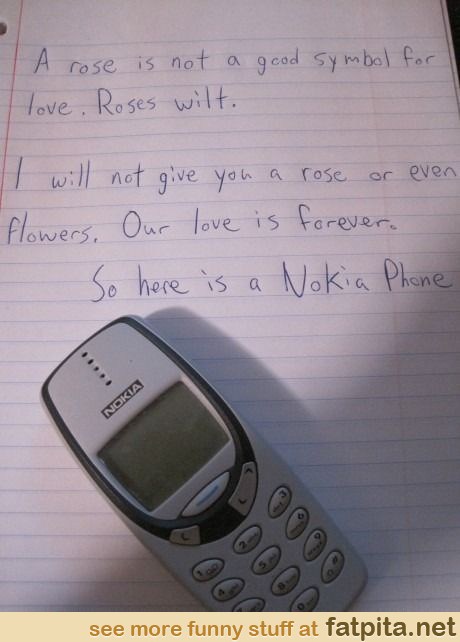 A rose is not a good symbol for
love. Roses wilt.
I will not give you a rose or even
flowers. Our love is forever.
So here is a Nokia Phone
NOKIA
1
2 abc
3
4
5
6
8
9
see more funny stuff at fatpita.net